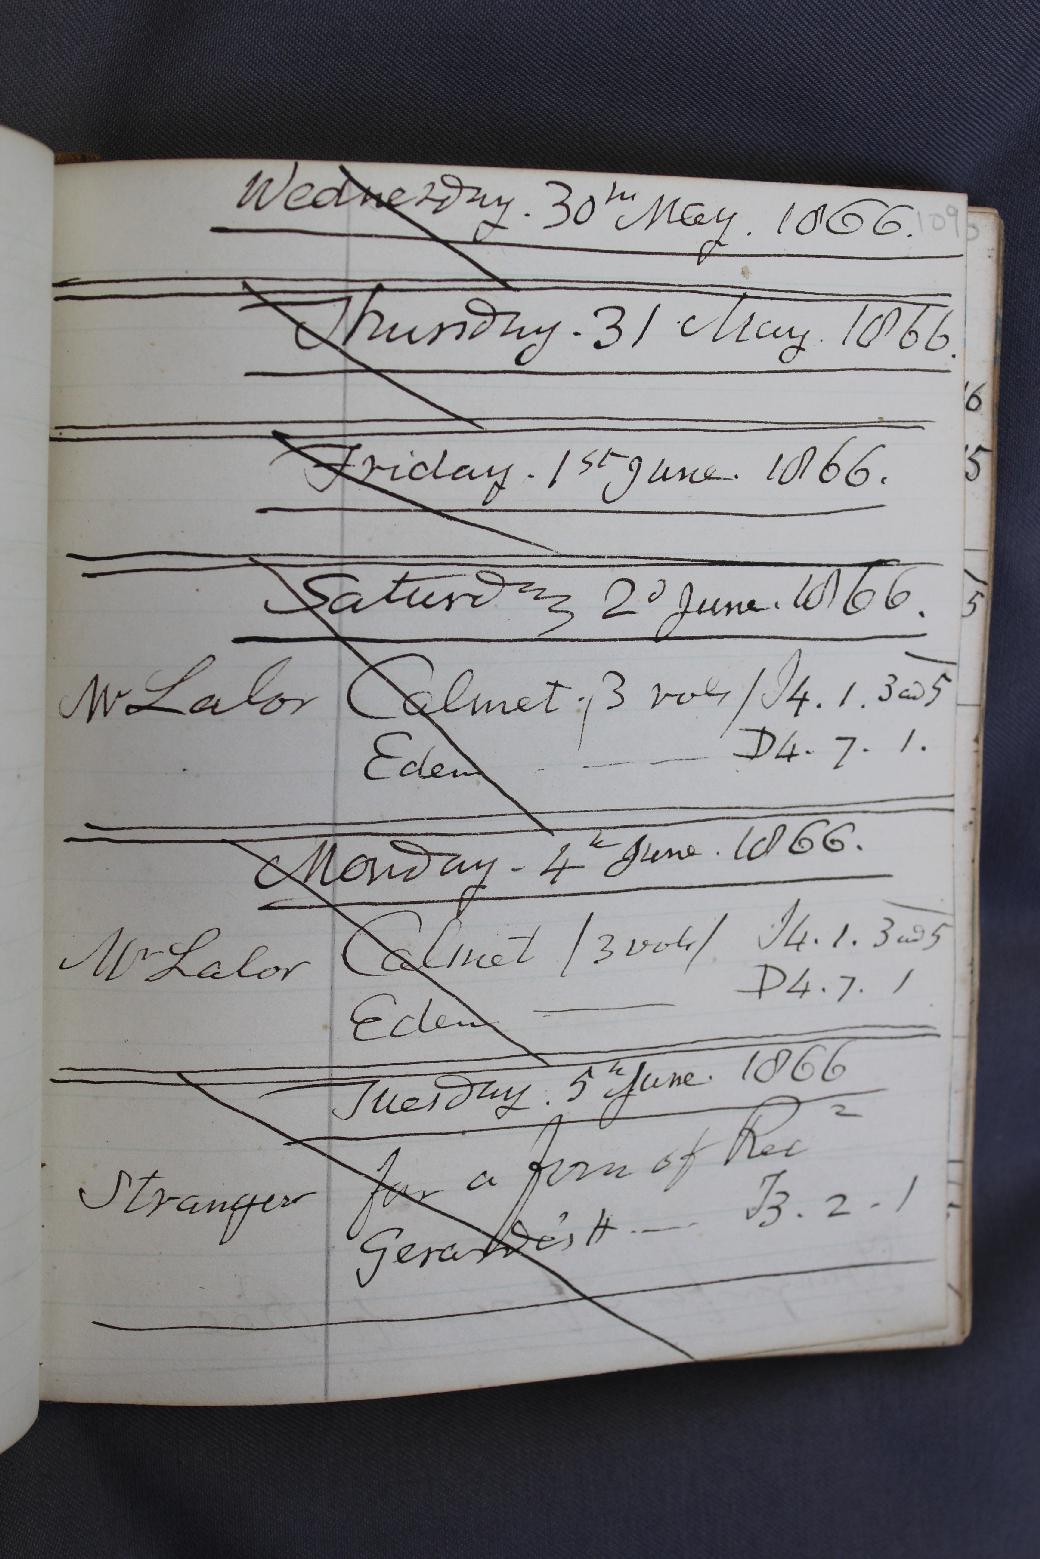 Wednesday. 30th May. 1866. 109
Thursday. 31 May. 1866.
Friday. 1st June. 1866.
Saturday 2d June. 1866.
Mr Lalor Calmet. /3 vols/ J4. 1. 3 and 5
Eden — D4. 7. 1.
Monday. 4th June. 1866.
Mr Lalor Calmet /3 vols/ J4. 1. 3 and 5
Eden — D4. 7. 1
Tuesday. 5th June. 1866
Stranger for a form of
— J3. 2. 1